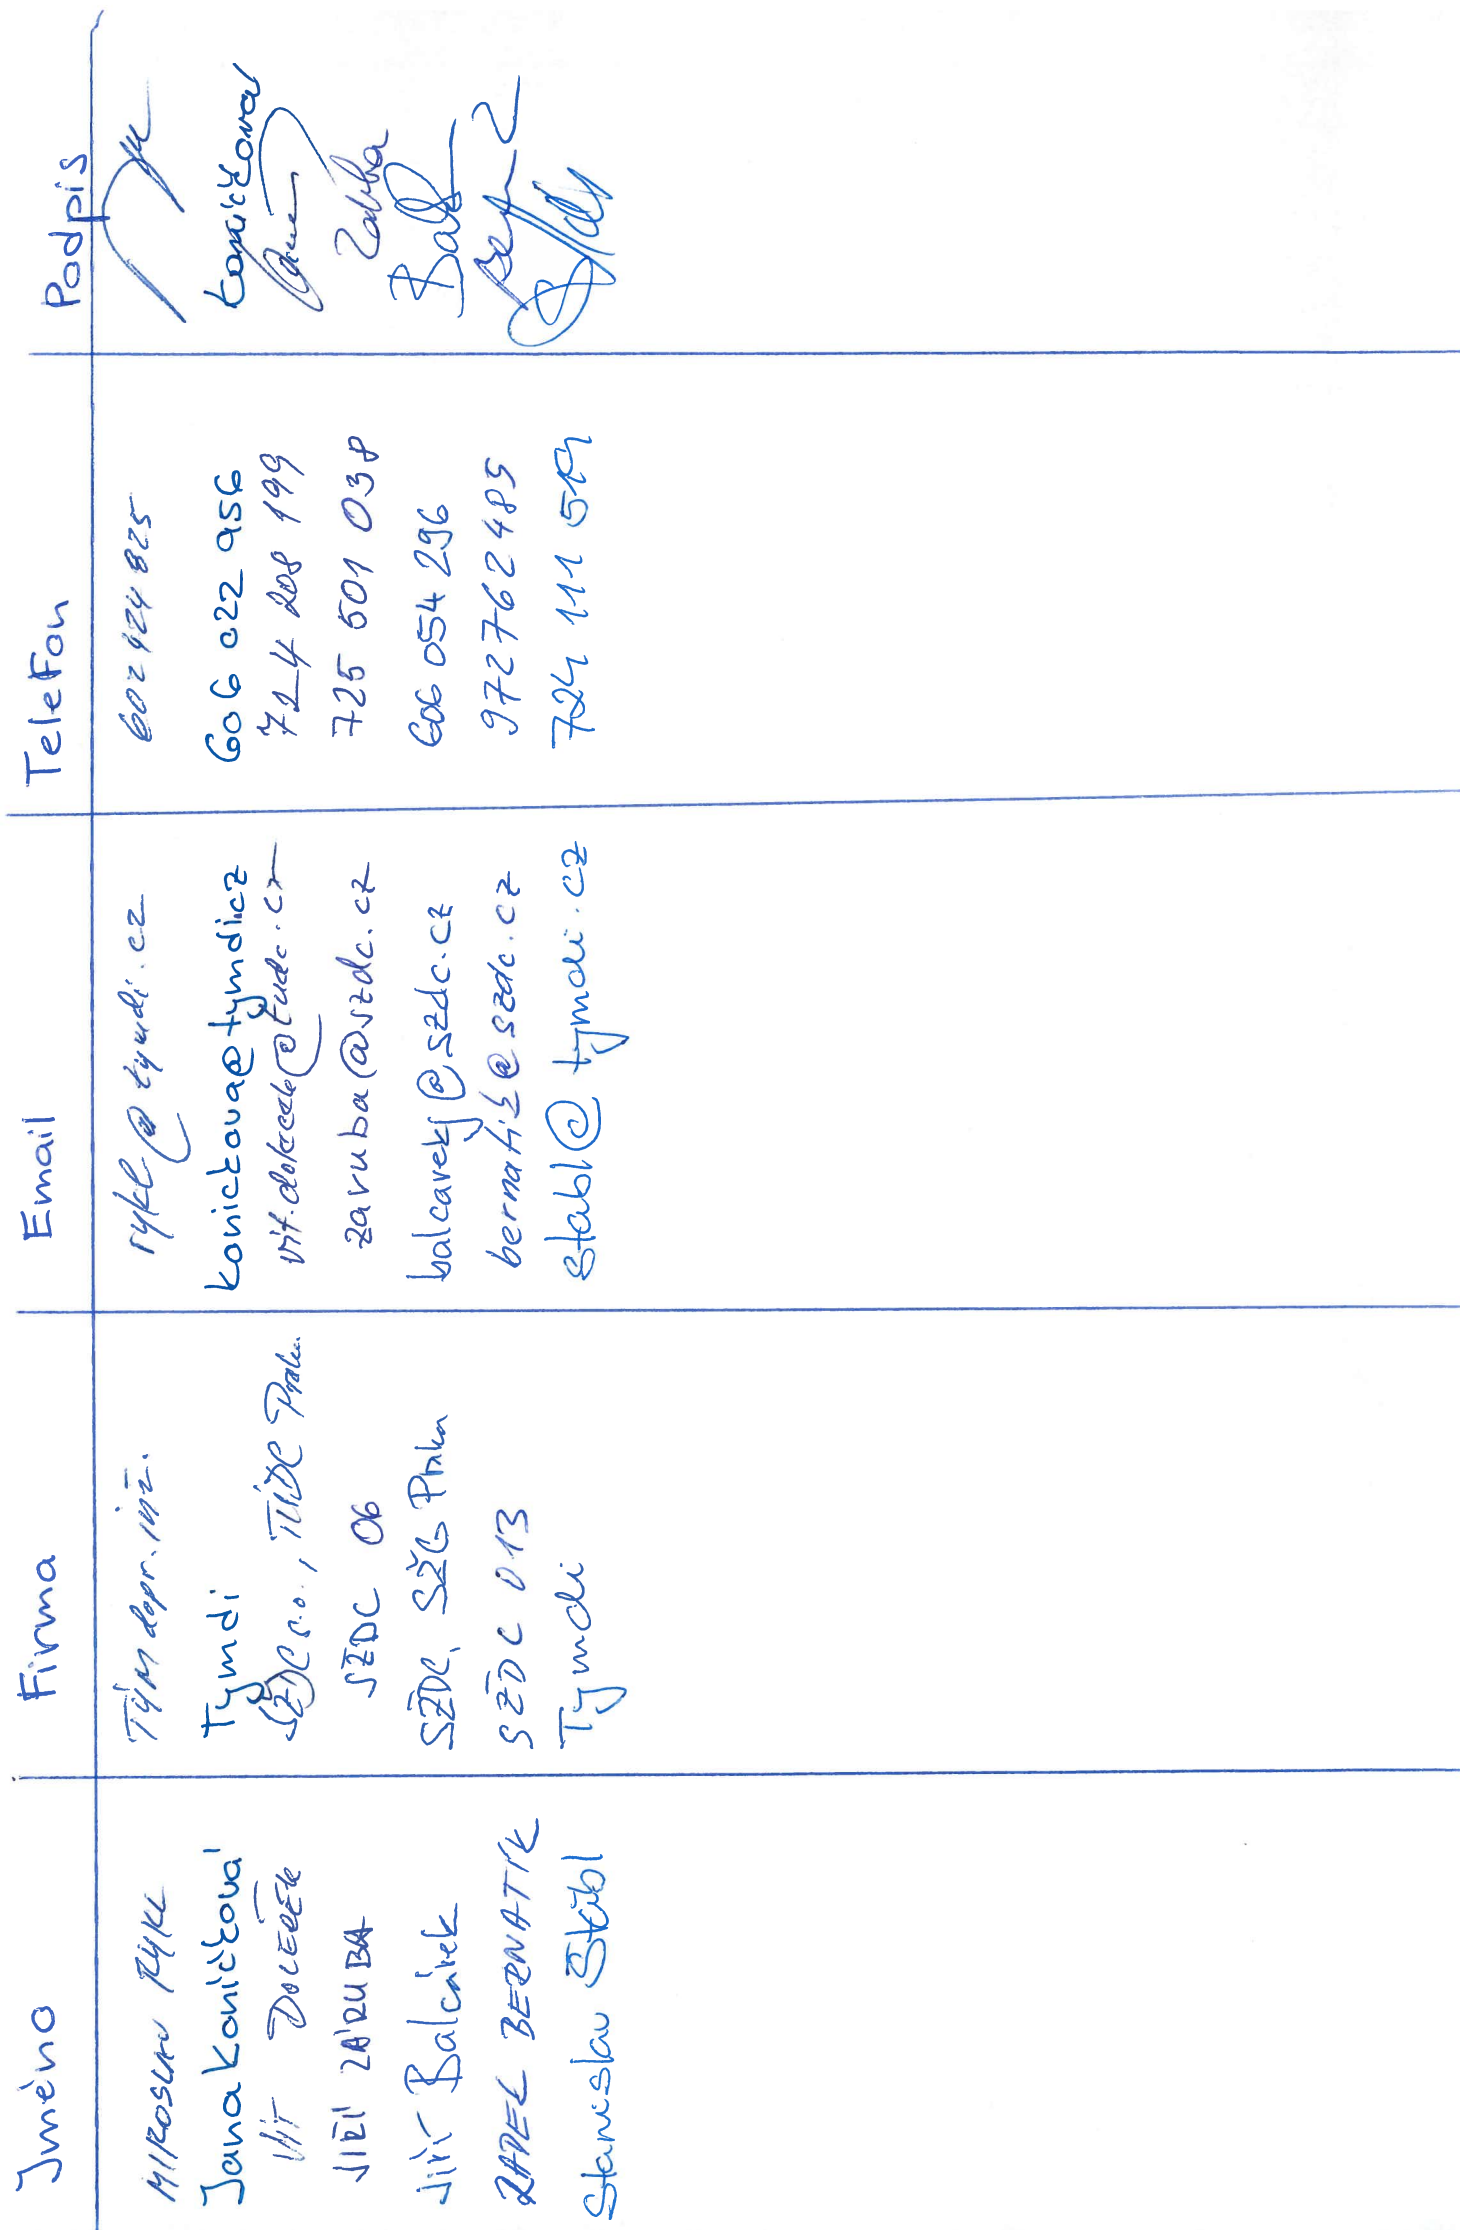 Jméno Firma Email Telefon Podpis
MIROSLAV RYKL TÝM dopr. inž. rykl@tymdi.cz 602 424 825
Jana Koníčková Tymdi konickova@tymdi.cz 606 022 956 Koníčková
VÍT SŽDC s.o., 724 208 199
JIŘÍ ZÁRUBA SŽDC O6 zaruba@szdc.cz 725 501 038
Jiří Balcárek SŽDC, SŽG Praha balcarekj@szdc.cz 606 054 296
RADEK BERNATÍK SŽDC O13 bernatik@szdc.cz 972762485
Stanislav Štábl Tymdi stabl@tymdi.cz 724 111